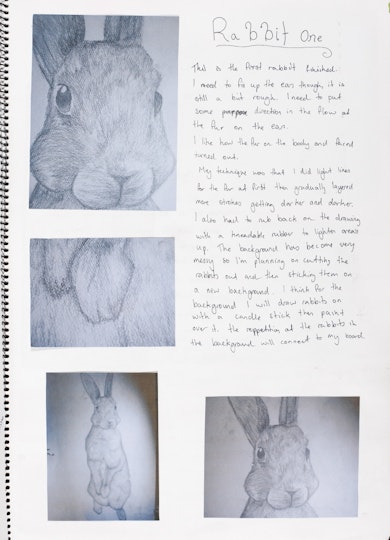 Rabbit One
This is the first rabbit finished.
I need to fix up the ears though, it is
still a bit rough. I need to put
some purpose direction in the flow of
the fur on the ears.
I like how the fur on the body and face
turned out.
My technique was that I did light lines
for the fur at first then gradually layered
more strokes getting darker and darker.
I also had to rub back on the drawing
with a kneadable rubber to lighten areas
up. The background has become very
messy so I'm planning on cutting the
rabbits out and then sticking them on
a new background. I think for the
background I will draw rabbits on
with a candle stick then paint
over it. the reppetition of the rabbits in
the background will connect to my board